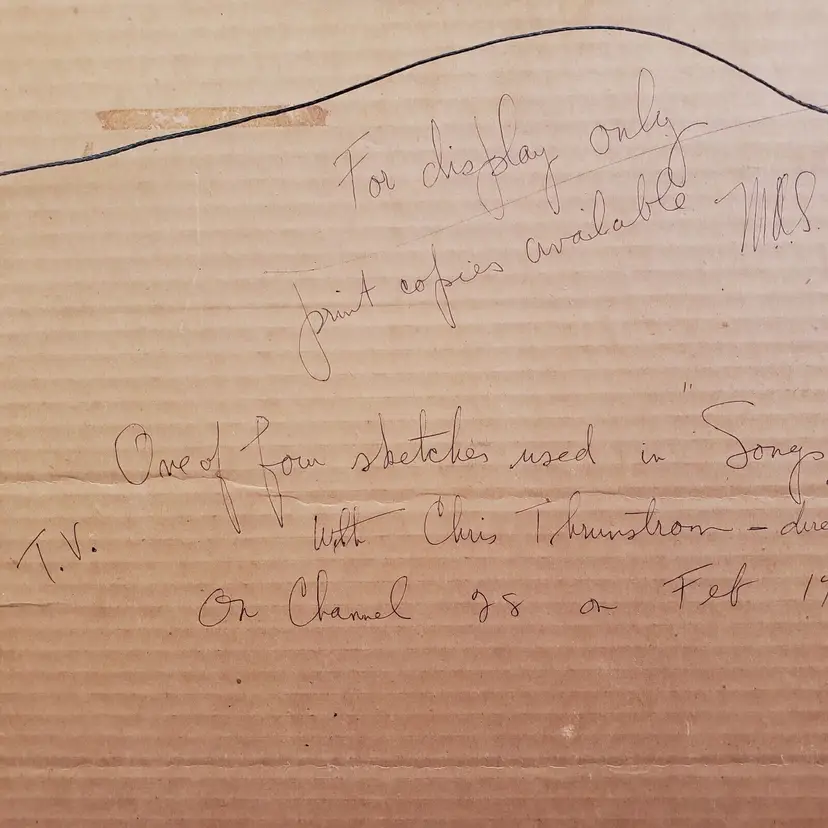 For display only
print copies available M.A.S.
One of four sketches used in "Songs
T.V. With Chris Thrunstrom – dire
On Channel 28 on Feb 19